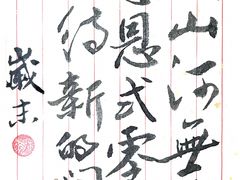 山河無
恩弍零
待新的
歲末